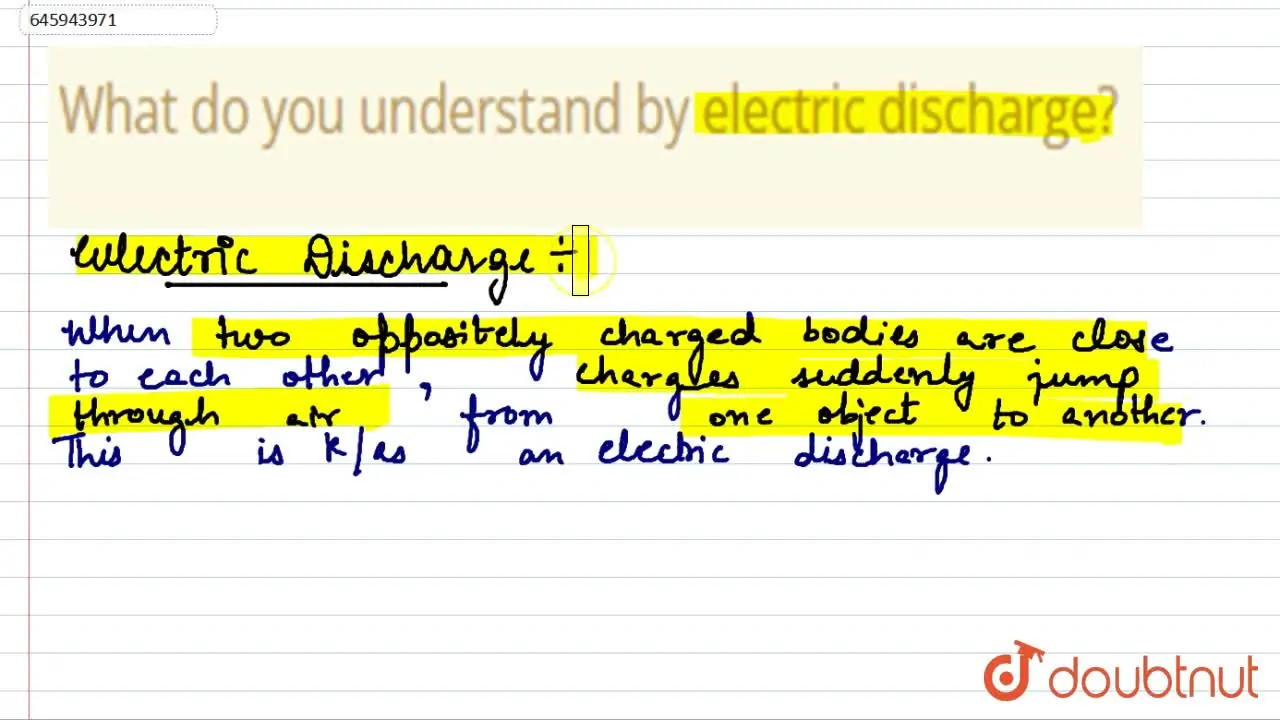 645943971
What do you understand by electric discharge?
Electric Discharge ÷
When two oppositely charged bodies are close
to each other, charges suddenly jump
through air from one object to another.
This is k/as an electric discharge.
doubtnut